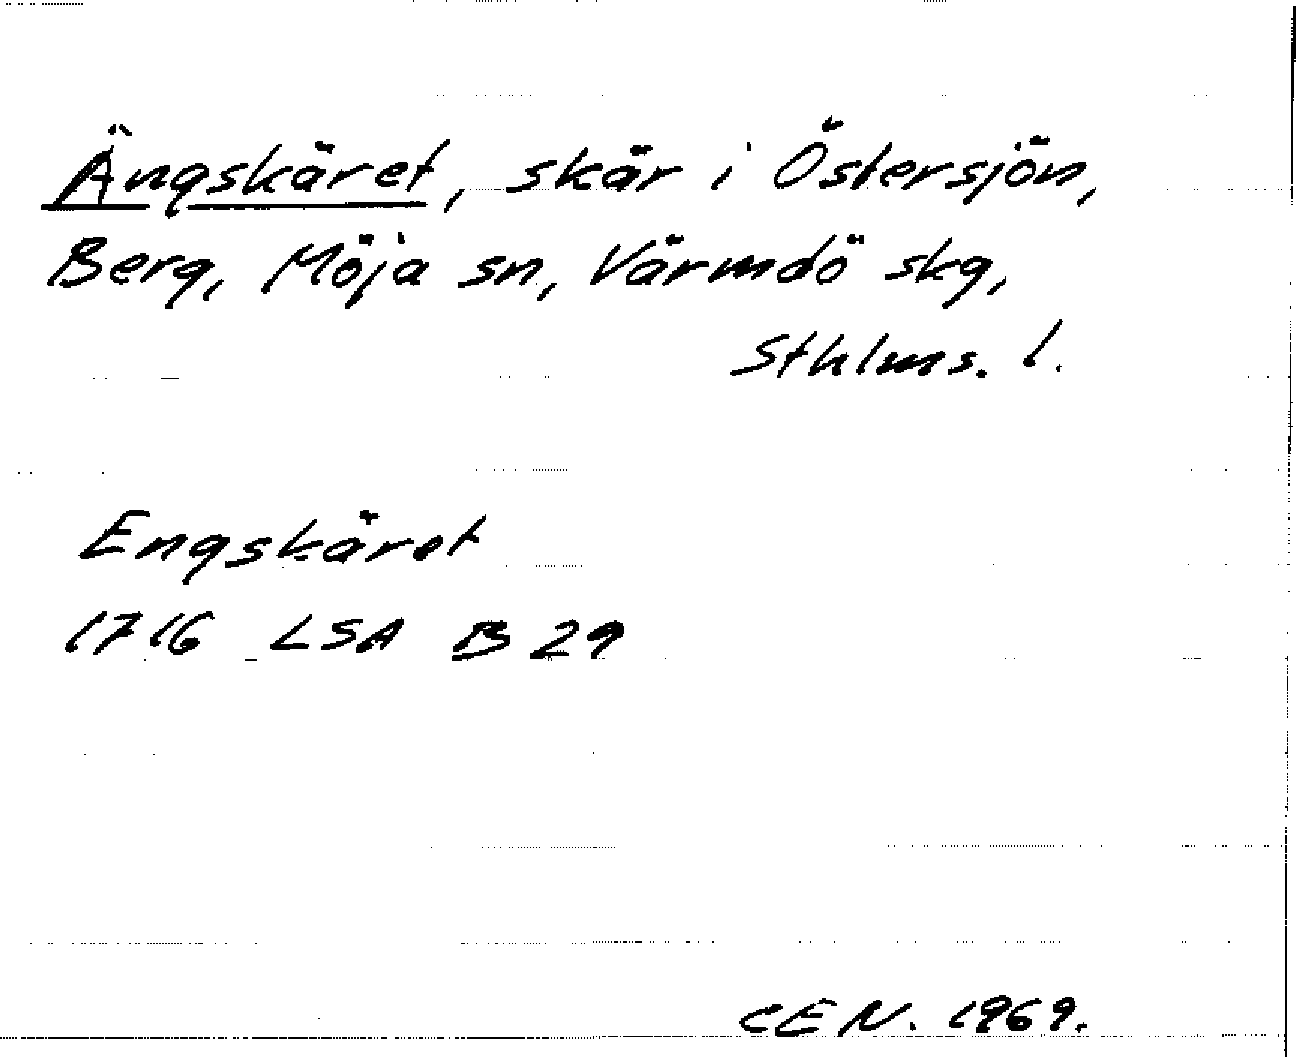 Ängskäret, skär i Östersjön,
Berg, Möja sn, Värmdö skg,
Sthlms. l.
Engskäret
1716 LSA B 29
CEN. 1969.